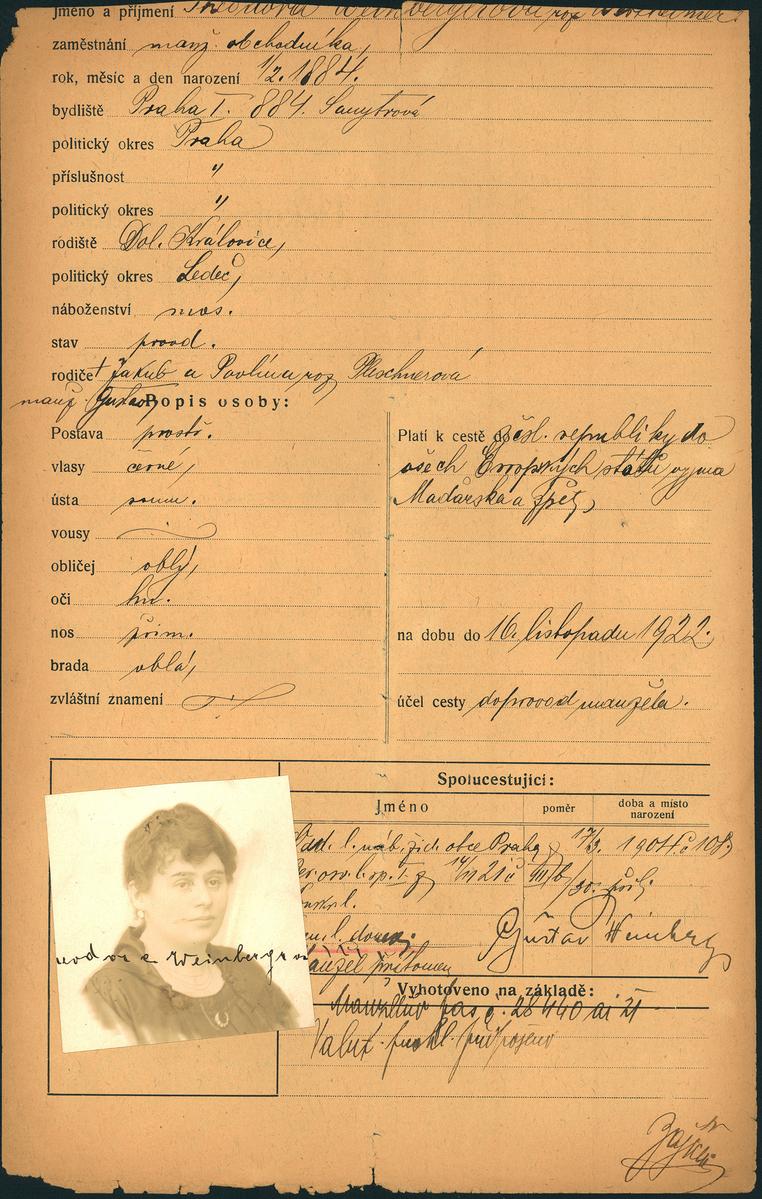 Jméno a příjmení Weinbergerová roz.
zaměstnání manž. obchodníka,
rok, měsíc a den narození 1/2. 1884.
bydliště Praha I. 884. Sanytrová
politický okres Praha
příslušnost "
politický okres "
rodiště Dol. Královice,
politický okres Ledeč,
náboženství mos.
stav provd.
rodiče † Jakub a Pavlína roz. Pleschnerová
manž. Gustav
Popis osoby:
Postava prostř.
vlasy černé,
ústa soum.
vousy
obličej oblý,
oči hn.
nos přim.
brada oblá,
zvláštní znamení
Platí k cestě do čsl. republiky do
všech Evropských států vyjma
Maďarska a zpět,
na dobu do 16. listopadu 1922.
účel cesty doprovod manžela.
Spolucestující:
Jméno poměr doba a místo narození
l. náb. žid. obce Praha 17/3. 1904 č 108
Gustav Weinberg
manžel přítomen
Vyhotoveno na základě:
pas č. 28440 ai 21
Valut. připojeno
Weinberger